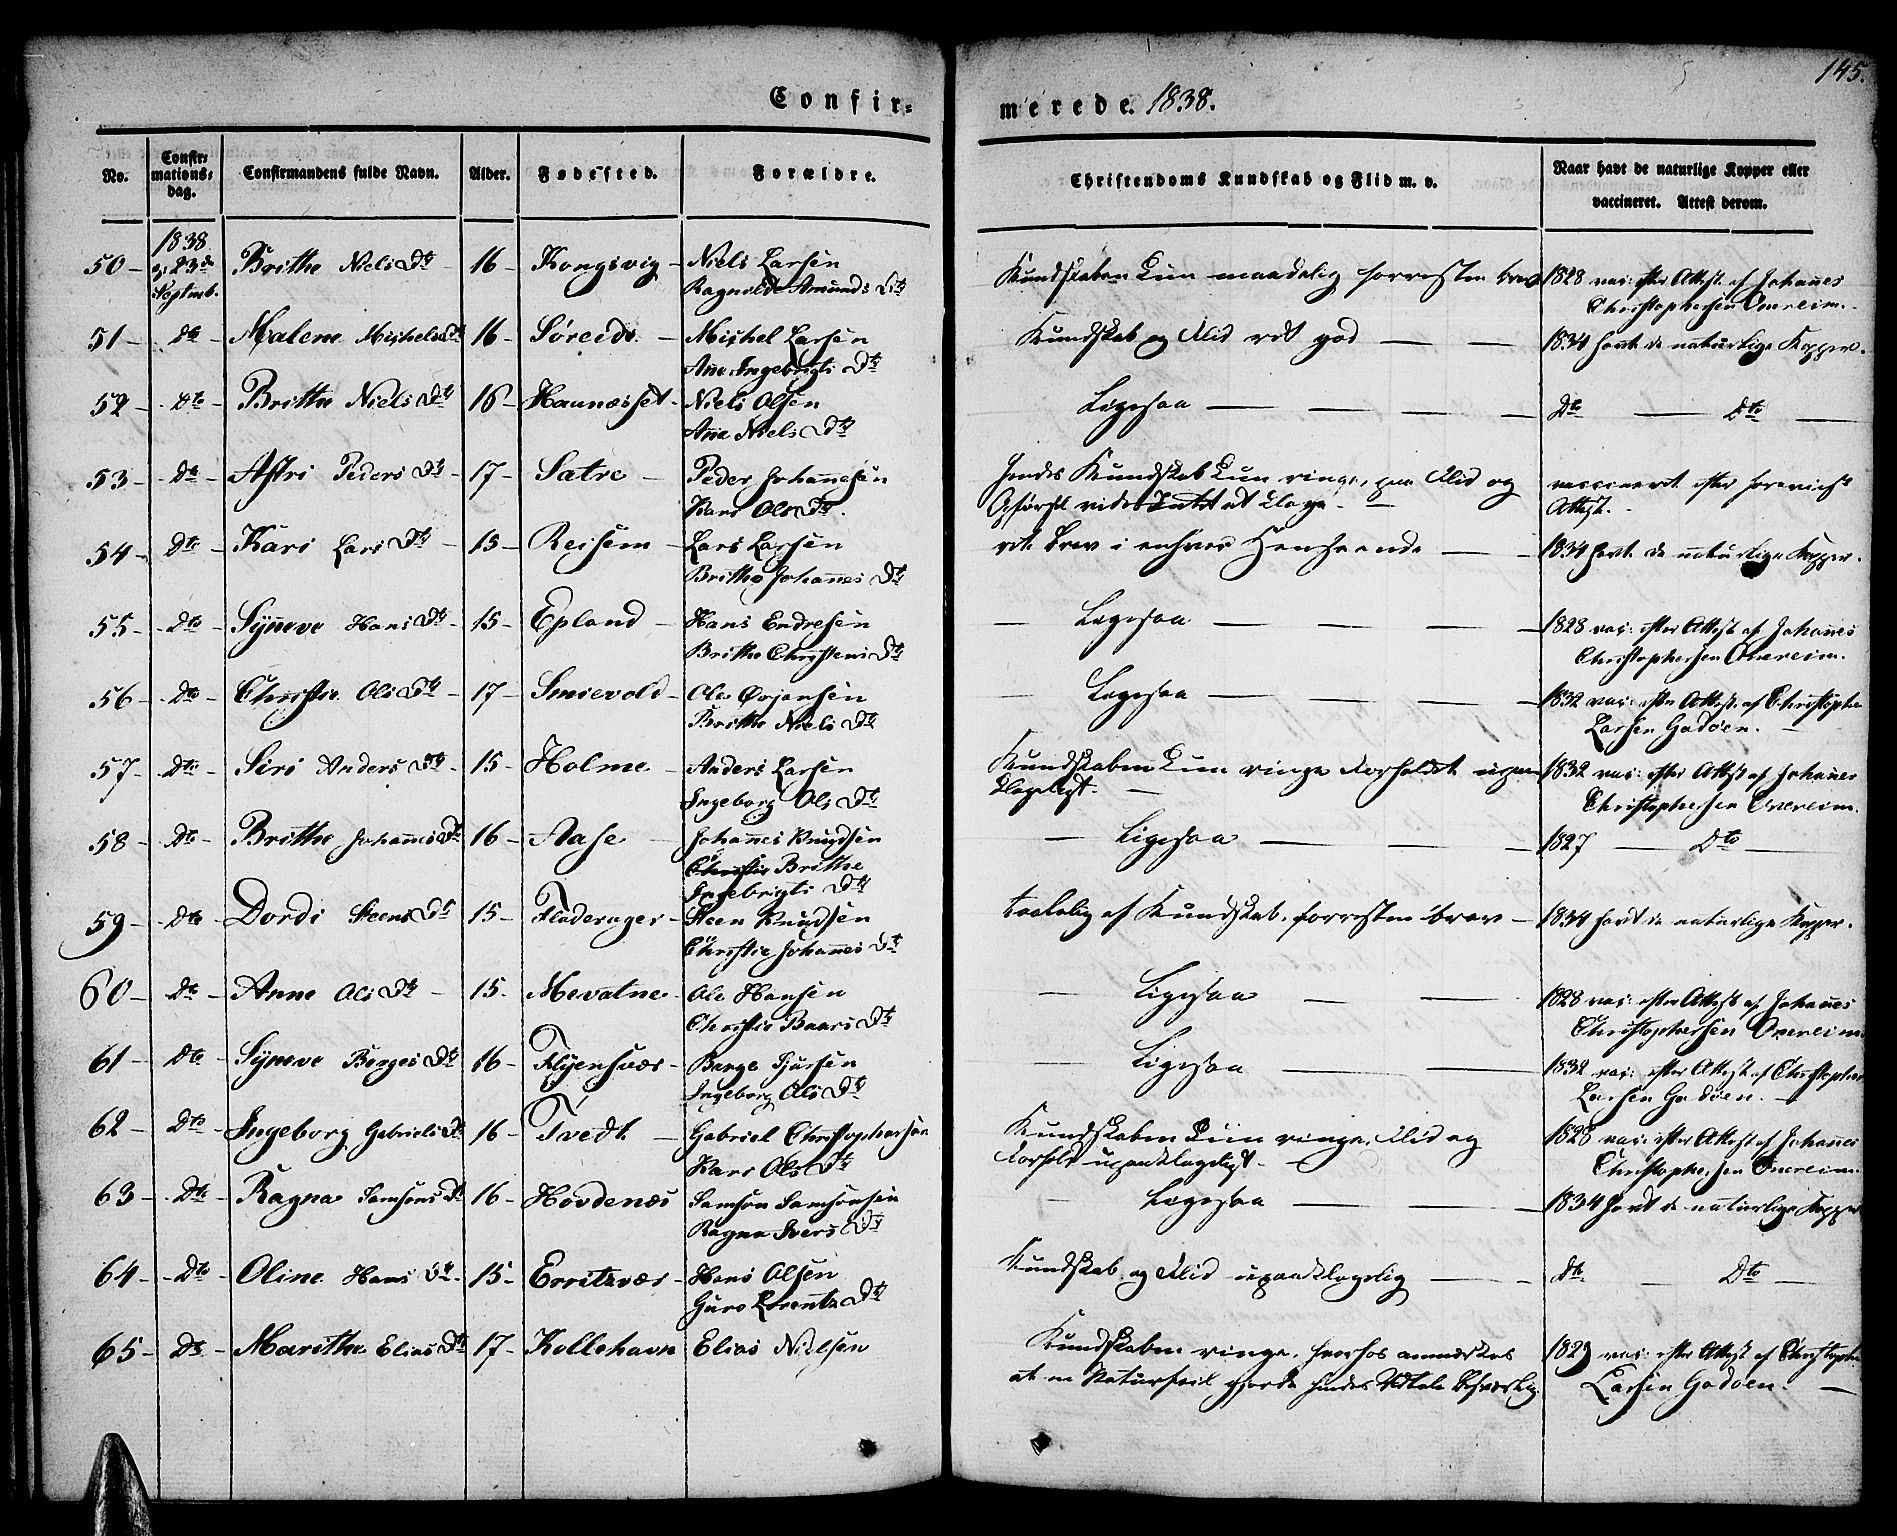 145.
Confir=
merede. 1838.
No.
Confir=
mations=
dag.
Confirmandens fulde Navn.
Alder.
Fødested.
Forældre.
Christendoms Kundskab og Flid m. v.
Naar havt de naturlige Kopper eller
vaccineret. Attest derom.
1838
50 - 23de Brithe Niels Dtr 16 - Kongsvig - Niels Larsen
Septemb. Ragnilde Amunds Dtr
Kundskaben kun maadelig forresten brav
1828 vac: efter Attest af Johañes
Christophersen Onereim.
51 - Dto - Malene Michels Dtr 16 - Søreide - Michel Larsen
Ane Ingebrigts Dtr
Kundskab og Flid ret god
1834 havt de naturlige Kopper.
52 - Dto - Brithe Niels Dtr 16 - Haunæsset - Niels Olsen
Ane Niels Dtr
Ligesaa
Dto Dto
53 - Dto - Astri Peders Dtr - 17 - Satre - Peder Johañesen
Kari Ols Dtr.
hendes Kundskab kun ringe, paa Flid og
Opførsel vides Intet at klage.
vaccineret efter foreviist
Attest.
54 - Dto - Kari Lars Dtr - 15 - Reisem - Lars Larsen
Brithe Johañes Dtr
ret brav i enhver Henseende
1834 havt de naturlige Kopper.
55 - Dto - Synneve Hans Dtr - 15 - Epland - Hans Endresen
Brithe Christens Dtr
Ligesaa
1828 vac: efter Attest af Johañes
Christophersen Onereim.
56 - Dto - Christie Ols Dtr - 17 - Smievold - Ole Ørjansen
Brithe Niels Dtr
Ligesaa
1832 vac: efter Attest af Christopher
Larsen Gadøen.
57 - Dto - Siri Anders Dtr - 15 - Holme - Anders Larsen
Ingeborg Ols Dtr
Kundskaben kun ringe Forholdet upaa
klageligt.
1832 vac: efter Attest af Johañes
Christophersen Onereim.
58 - Dto - Brithe Johannes Dtr 16 - Aase - Johañes Knudsen
Christie Brithe
Ingebrigts Dtr
Ligesaa
1827 Dto
59 - Dto - Dordi Steens Dtr 15 - Fladerager - Steen Knudsen
Christie Johañes Dtr
taalelig af Kundskab, forresten brav
1834 havt de naturlige Kopper.
60 - Dto - Anne Ols Dtr - 15 - Mevatne - Ole Hansen
Christie Baars Dtr
Ligesaa
1828 vac: efter Attest af Johañes
Christophersen Onereim
61 - Dto - Synneve Børges Dtr 16 - Børge Sjursen
Ingeborg Ols Dtr
Ligesaa
1832 vac: efter Attest af Christopher
Larsen Gadøen.
62 - Dto - Ingeborg Gabriels Dtr 16 - Tvedt - Gabriel Christophersen
Kari Ols Dtr
Kundskaben kun ringe, Flid og
Forhold upaaklageligt.
1828 vac: efter Attest af Johañes
Christophersen Onereim
63 - Dto - Ragna Samsons Dtr 16 - Hovdenæs Samson Samsonsen
Ragna Ivers Dtr
Ligesaa
1834 havt de naturlige Kopper
64 - Dto - Oline Hans Dtr - 15 - Erritzvær - Hans Olsen
Guro Lorentz Dtr
Kundskab og Flid upaaklagelig
Dto Dto
65 - Dto - Marithe Elias Dtr 17 - Kollehavn Elias Nielsen
Kundskaben ringe, hvorhos anmærkes
at en Naturfeil gjorde hendes Udtale besværlig.
1829 vac: efter Attest af Christopher
Larsen Gadøen.